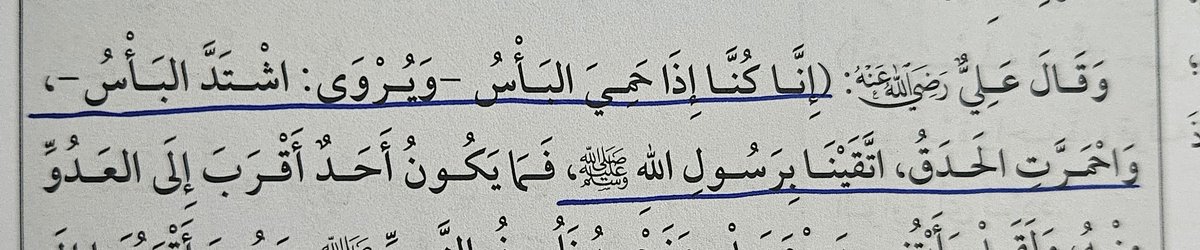 وَقَالَ عَلِيٌّ رَضِيَ اللَّهُ عَنْهُ: (إِنَّا كُنَّا إِذَا حَمِيَ البَأْسُ -وَيُرْوَى: اشْتَدَّ البَأْسُ-،
وَاحْمَرَّتِ الحَدَقُ، اتَّقَيْنَا بِرَسُولِ الله ﷺ، فَمَا يَكُونُ أَحَدٌ أَقْرَبَ إِلَى العَدُوِّ